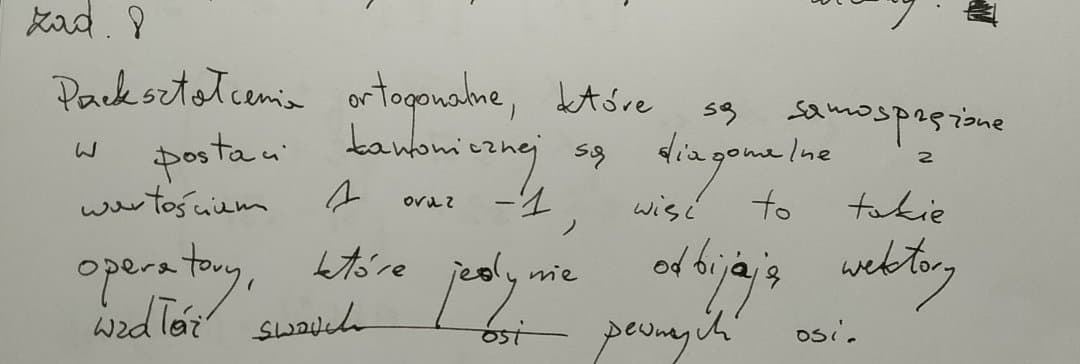 zad. 8
Przekształcenia ortogonalne, które są samosprzężone
w postaci kanonicznej są diagonalne z
wartościami 1 oraz -1, więc to takie
operatory, które jedynie odbijają wektory
wzdłóż swoich osi pewnych osi.